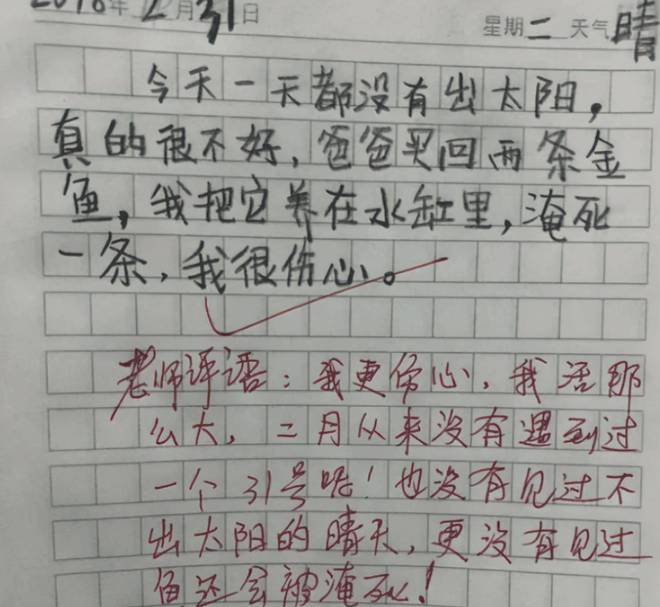 2018年 2月31日 星期二 天气晴
今天一天都没有出太阳，
真的很不好，爸爸买回两条金
鱼，我把它养在水缸里，淹死
一条，我很伤心。
老师评语：我更伤心，我活那
么大，二月从来没有遇到过
一个31号呢！也没有见过不
出太阳的晴天，更没有见过
鱼还会被淹死！